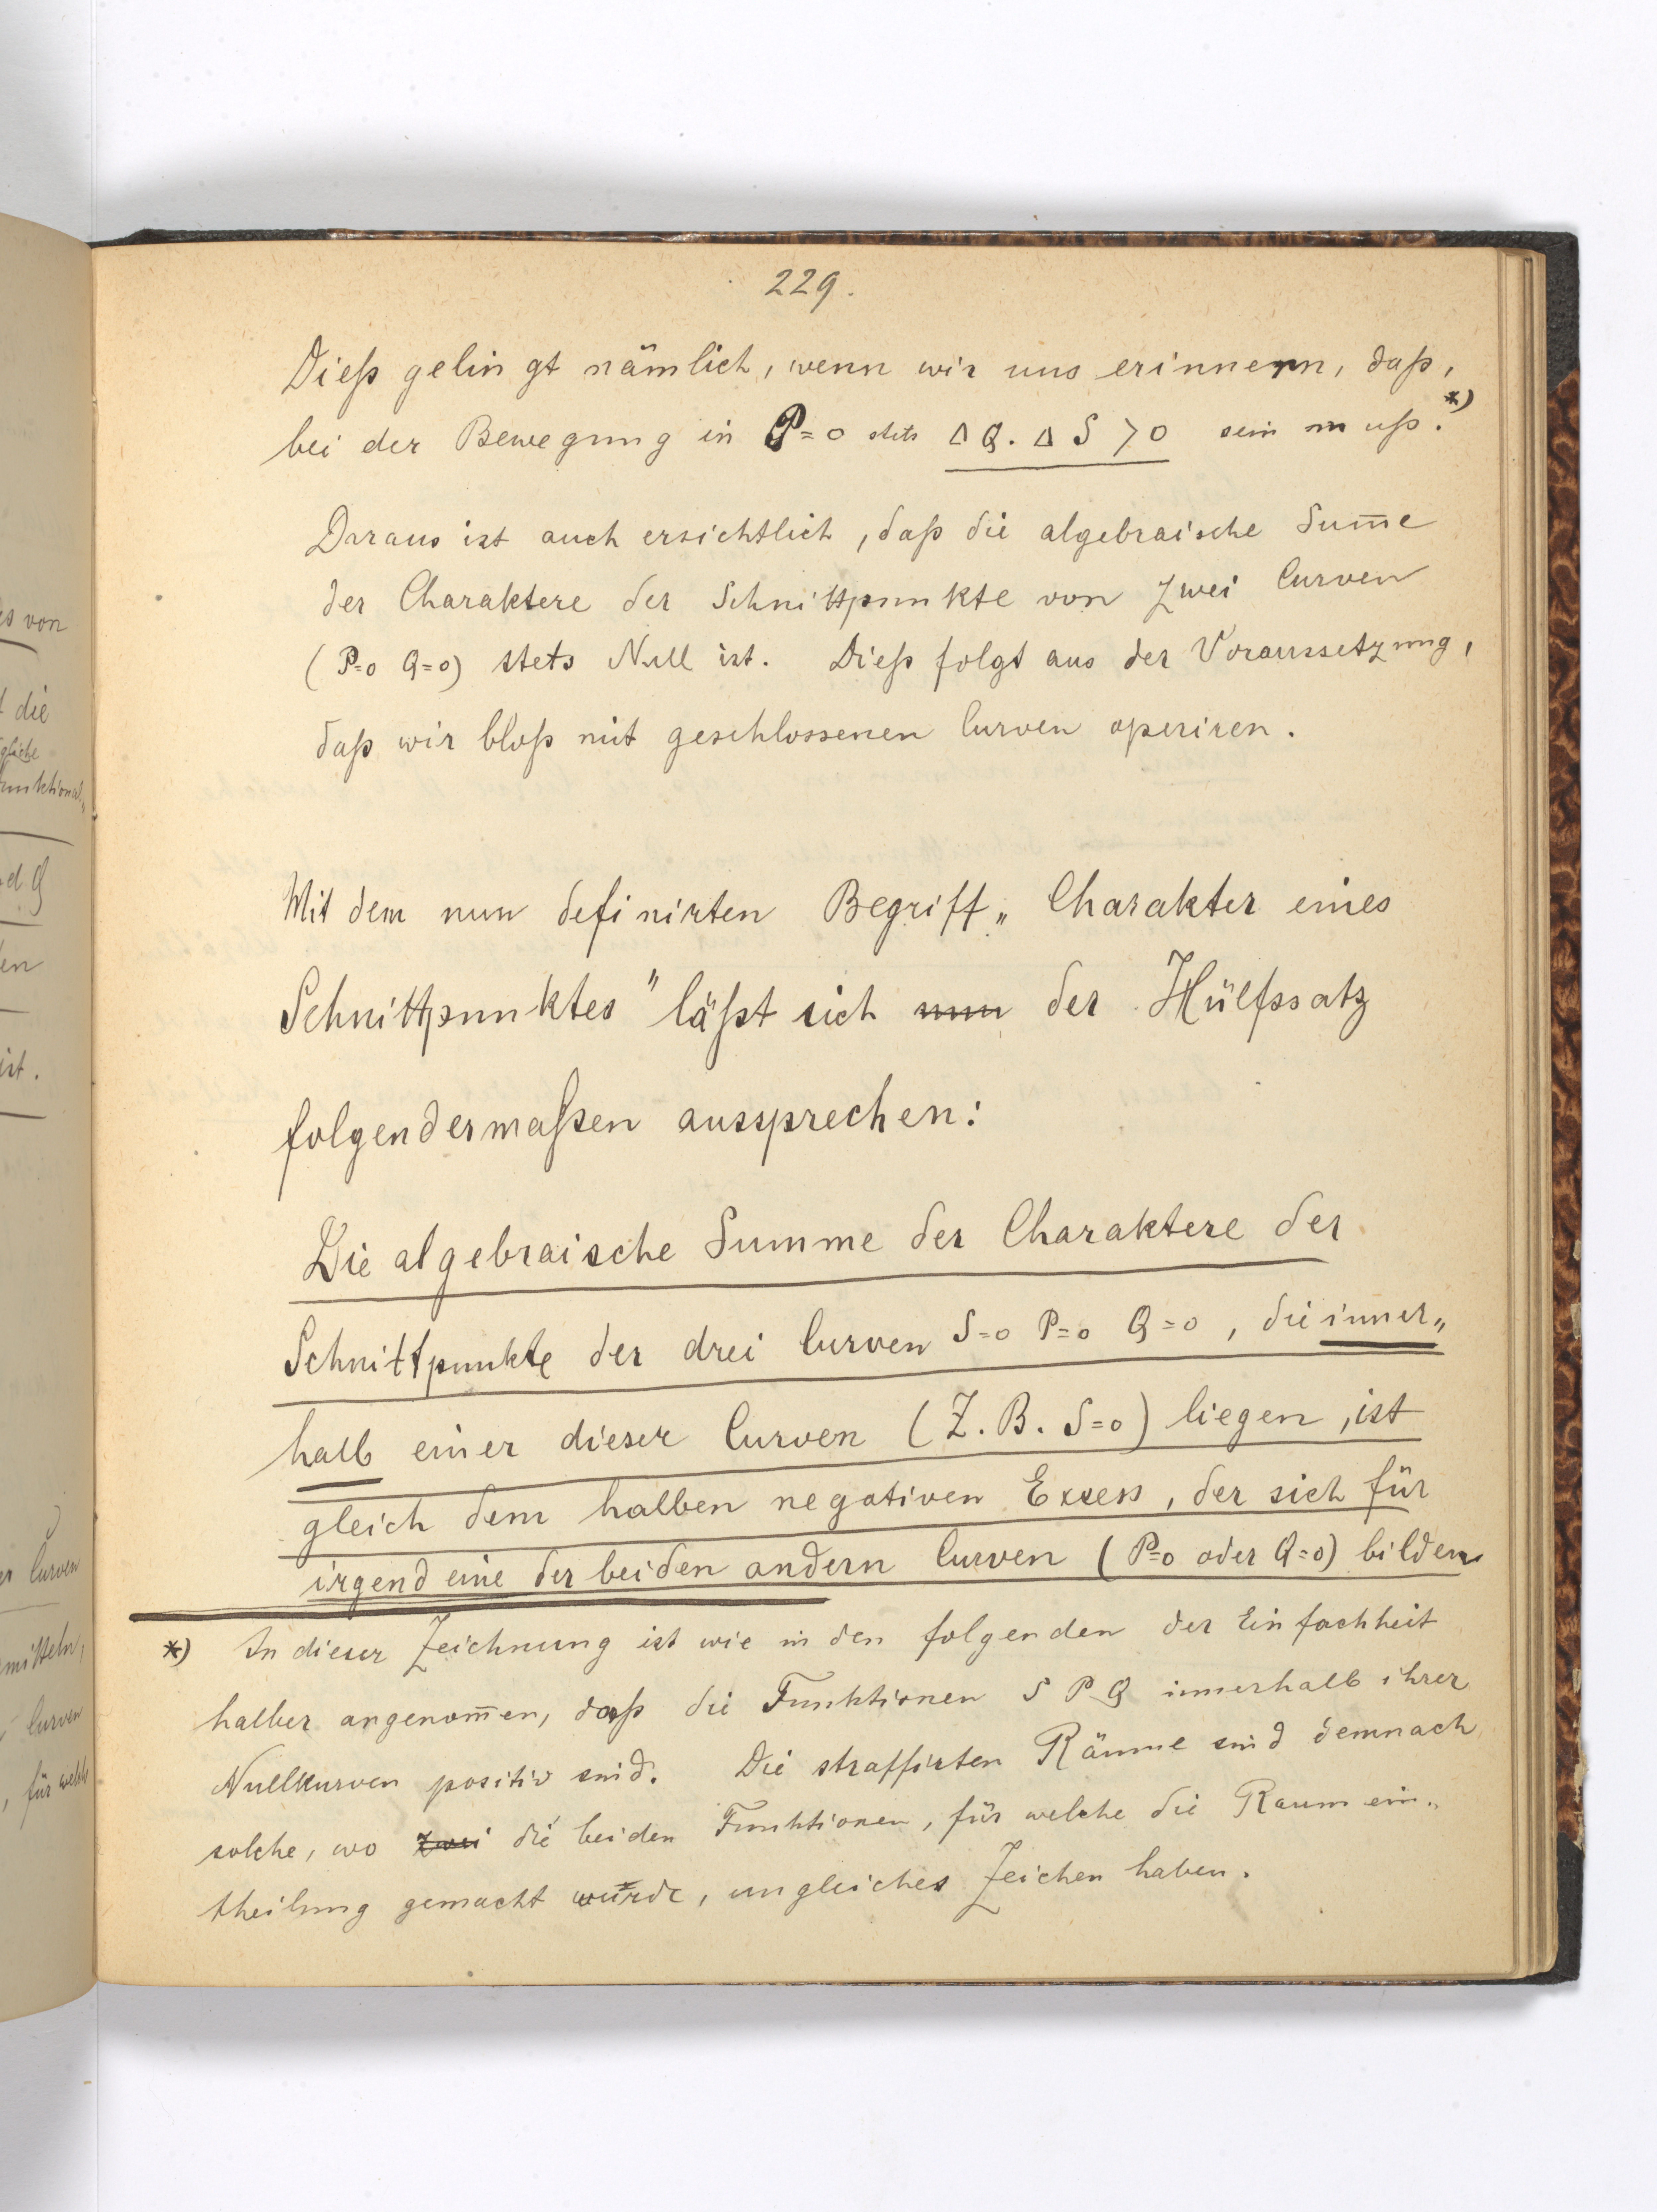 229.
Dieß gelingt nämlich, wenn wir uns erinnern, daß,
bei der Bewegung in P=0 stets Δ Q. Δ S > 0 sein muß.*)
Daraus ist auch ersichtlich, daß die algebraische Sum̄e
der Charaktere der Schnittpunkte von zwei Curven
(P=0 Q=0) stets Null ist. Dieß folgt aus der Voraussetzung,
daß wir bloß mit geschlossenen Curven operiren.
Mit dem nun definirten Begriff „Charakter eines
Schnittpunktes" läßt sich nun der Hülfssatz
folgendermaßen aussprechen:
Die algebraische Summe der Charaktere der
Schnittpunkte der drei Curven S=0 P=0 Q=0, die inner„
halb einer dieser Curven (Z.B. S=0) liegen, ist
gleich dem halben negativen Excess, der sich für
irgend eine der beiden andern Curven (P=0 oder Q=0) bilden
*) In dieser Zeichnung ist wie in den folgenden der Einfachheit
halber angenom̄en, daß die Funktionen S P Q innerhalb ihrer
Nullkurven positiv sind. Die straffirten Räume sind demnach
solche, wo zwei die beiden Funktionen, für welche die Raumein„
theilung gemacht wurde, ungleiches Zeichen haben.
es von
die
gliche
funktional„
d Q
en
ist.
er Curven
mitteln,
Curven
, für welche